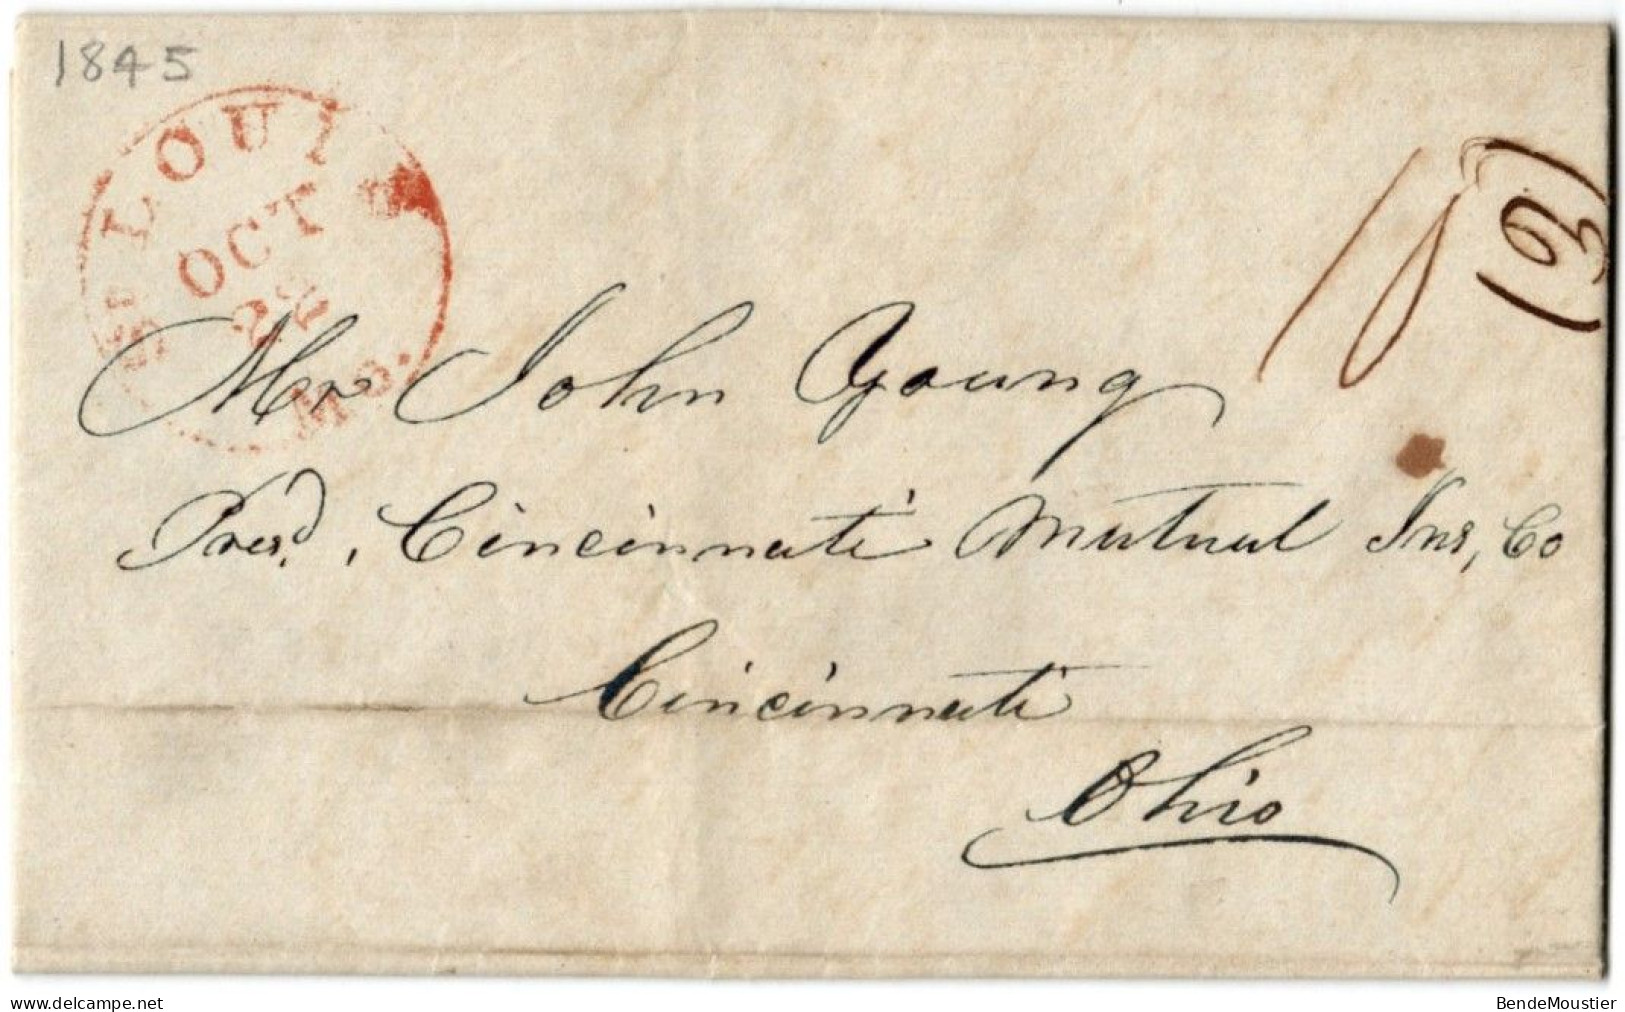 1845
ST LOUIS
OCT
22
Mo.
10
Mr John Young
Presd., Cincinnati Mutual Ins, Co
Cincinnati
Ohio
www.delcampe.net
BendeMoustier